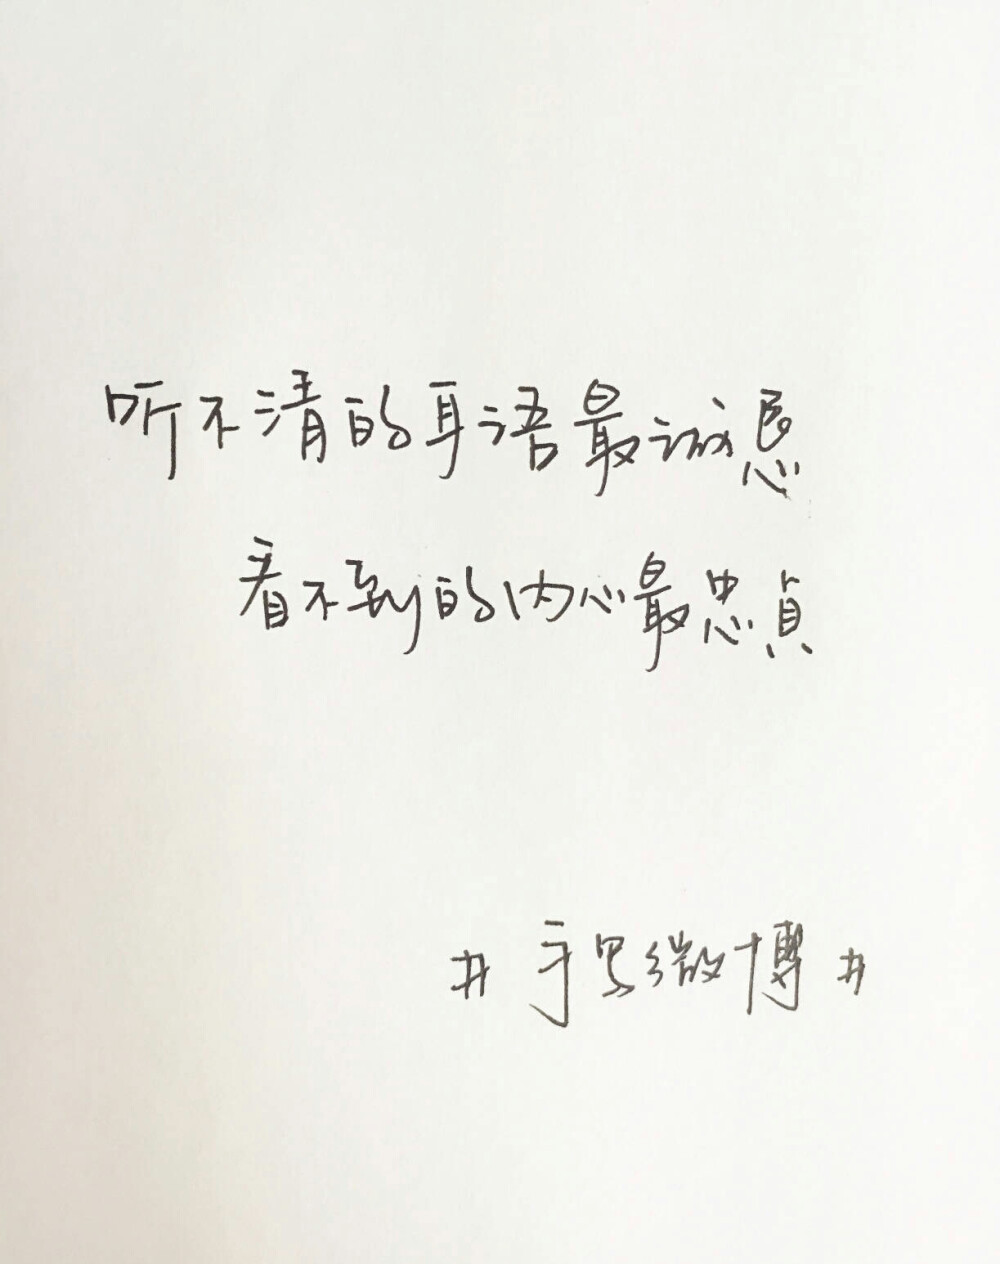 听不清的耳语最诚恳
看不到的内心最忠贞
#手写微博#